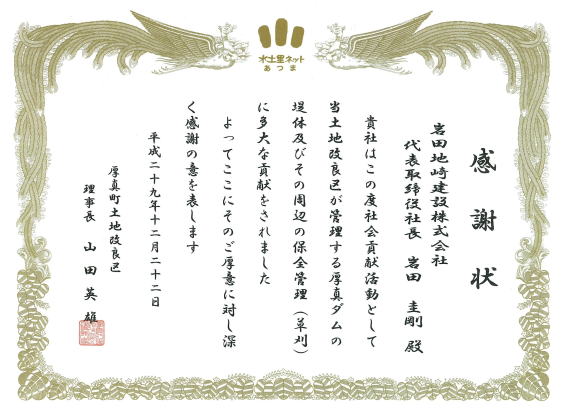 水土里ネット
あつま
感謝状
岩田地崎建設株式会社
代表取締役社長 岩田 圭剛 殿
貴社はこの度社会貢献活動として
当土地改良区が管理する厚真ダムの
堤体及びその周辺の保全管理（草刈）
に多大な貢献をされました
よってここにそのご厚意に対し深
く感謝の意を表します
平成二十九年十二月二十二日
厚真町土地改良区
理事長 山田 英雄